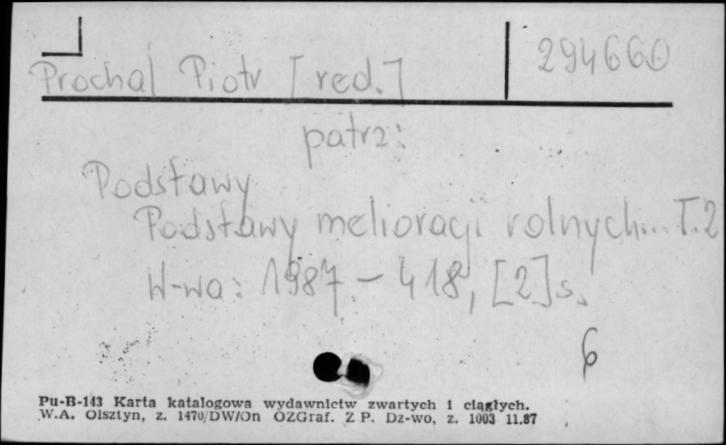 Prochal Piotr [red.]
294660
patrz:
Podstawy
Podstawy melioracji rolnych... T.2
W-wa: 1987. - 418, [2] s.
6
Pu-B-143 Karta katalogowa wydawnictw zwartych i ciągłych.
W.A. Olsztyn, z. 1470/DW/On OZGraf. Z P. Dz-wo, z. 1003 11.87